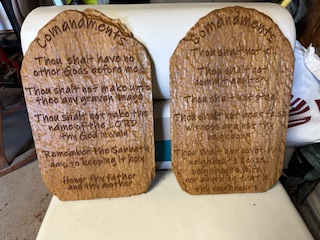 Comandments
Thou shalt have no
other Gods before me
Thou shalt not make unto
thee any graven image
Thou shalt not take the
name of the LORD
thy God in vain
Remember the Sabbath
day, to keeping it holy
Honor thy father
and thy mother
Comandments
Thou shalt not
Thou shalt not
commit adultery
Thou shalt not steal
Thou shalt not bear false
witness against thy
neighbor
Thou shalt not
neighbor's house
nor
thy neighbor's